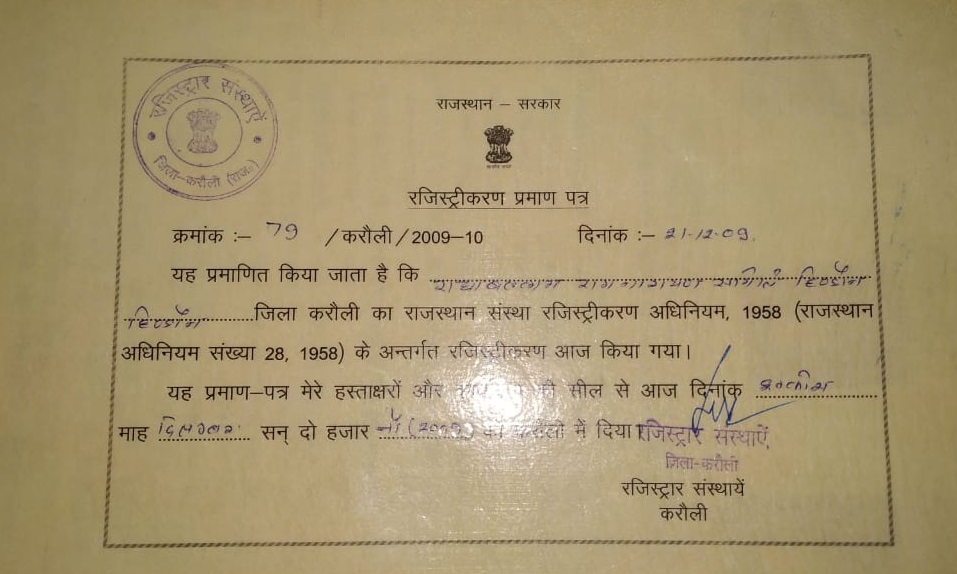 रजिस्ट्रार संस्थाऐं
जिला-करौली (राज.)
राजस्थान – सरकार
रजिस्ट्रीकरण प्रमाण पत्र
क्रमांक :– 79 /करौली/2009–10 दिनांक :– 21-12-09.
यह प्रमाणित किया जाता है कि समिति हिण्डौन
हिण्डौन जिला करौली का राजस्थान संस्था रजिस्ट्रीकरण अधिनियम, 1958 (राजस्थान
अधिनियम संख्या 28, 1958) के अन्तर्गत रजिस्ट्रीकरण आज किया गया।
यह प्रमाण–पत्र मेरे हस्ताक्षरों और की सील से आज दिनांक इक्कीस
माह दिसम्बर सन् दो हजार नौ (2009) को करौली में दिया।
रजिस्ट्रार संस्थाऐं
जिला-करौली
रजिस्ट्रार संस्थायें
करौली